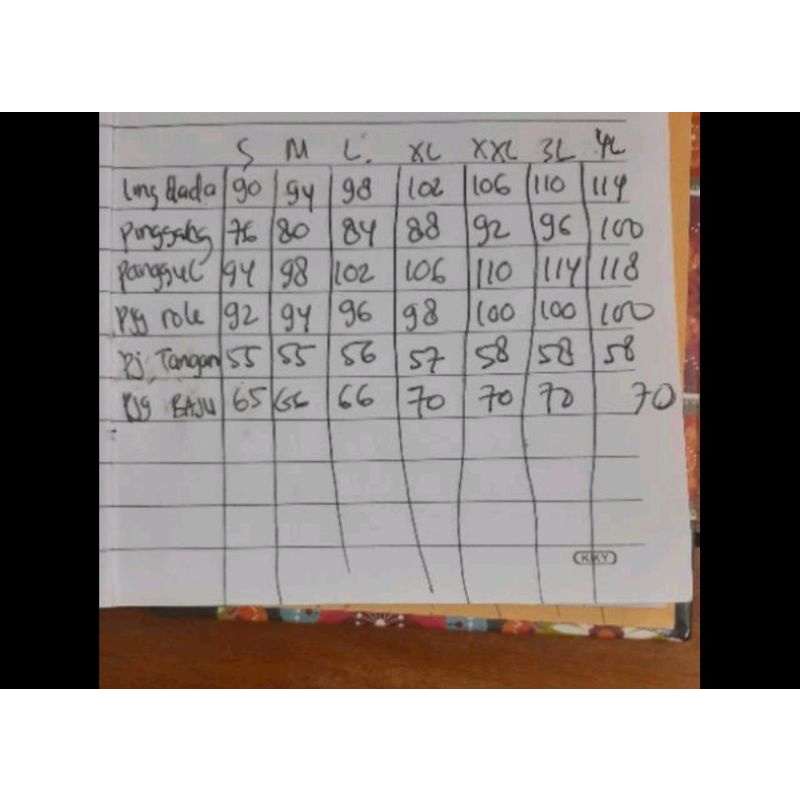 S M L. XL XXL 3L 4L
Ling Dada 90 94 98 102 106 110 114
pinggang 76 80 84 88 92 96 100
panggul 94 98 102 106 110 114 118
Pjg role 92 94 96 98 100 100 100
Pj, Tangan 55 55 56 57 58 58 58
Pjg BAJU 65 66 66 70 70 70 70
KKY